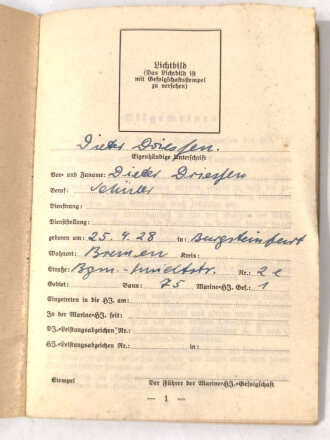 Lichtbild
(Das Lichtbild ist
mit Gefolgschaftsstempel
zu versehen)
Dieter Driessen.
Eigenhändige Unterschrift
Vor- und Zuname: Dieter Driessen
Beruf: Schüler
Dienstrang:
Dienststellung:
geboren am 25.4.28 in: Burgsteinfurt
Wohnort: Bremen Kreis:
Straße: Bgm.-Smidtstr. Nr.: 2
Gebiet: Bann: 75 Marine-HJ. Gef.: 1
Eingetreten in die HJ. am:
In der Marine-HJ. seit:
DJ.-Leistungsabzeichen Nr.:
HJ.-Leistungsabzeichen Nr.: in:
Stempel Der Führer der Marine-HJ.-Gefolgschaft
— 1 —